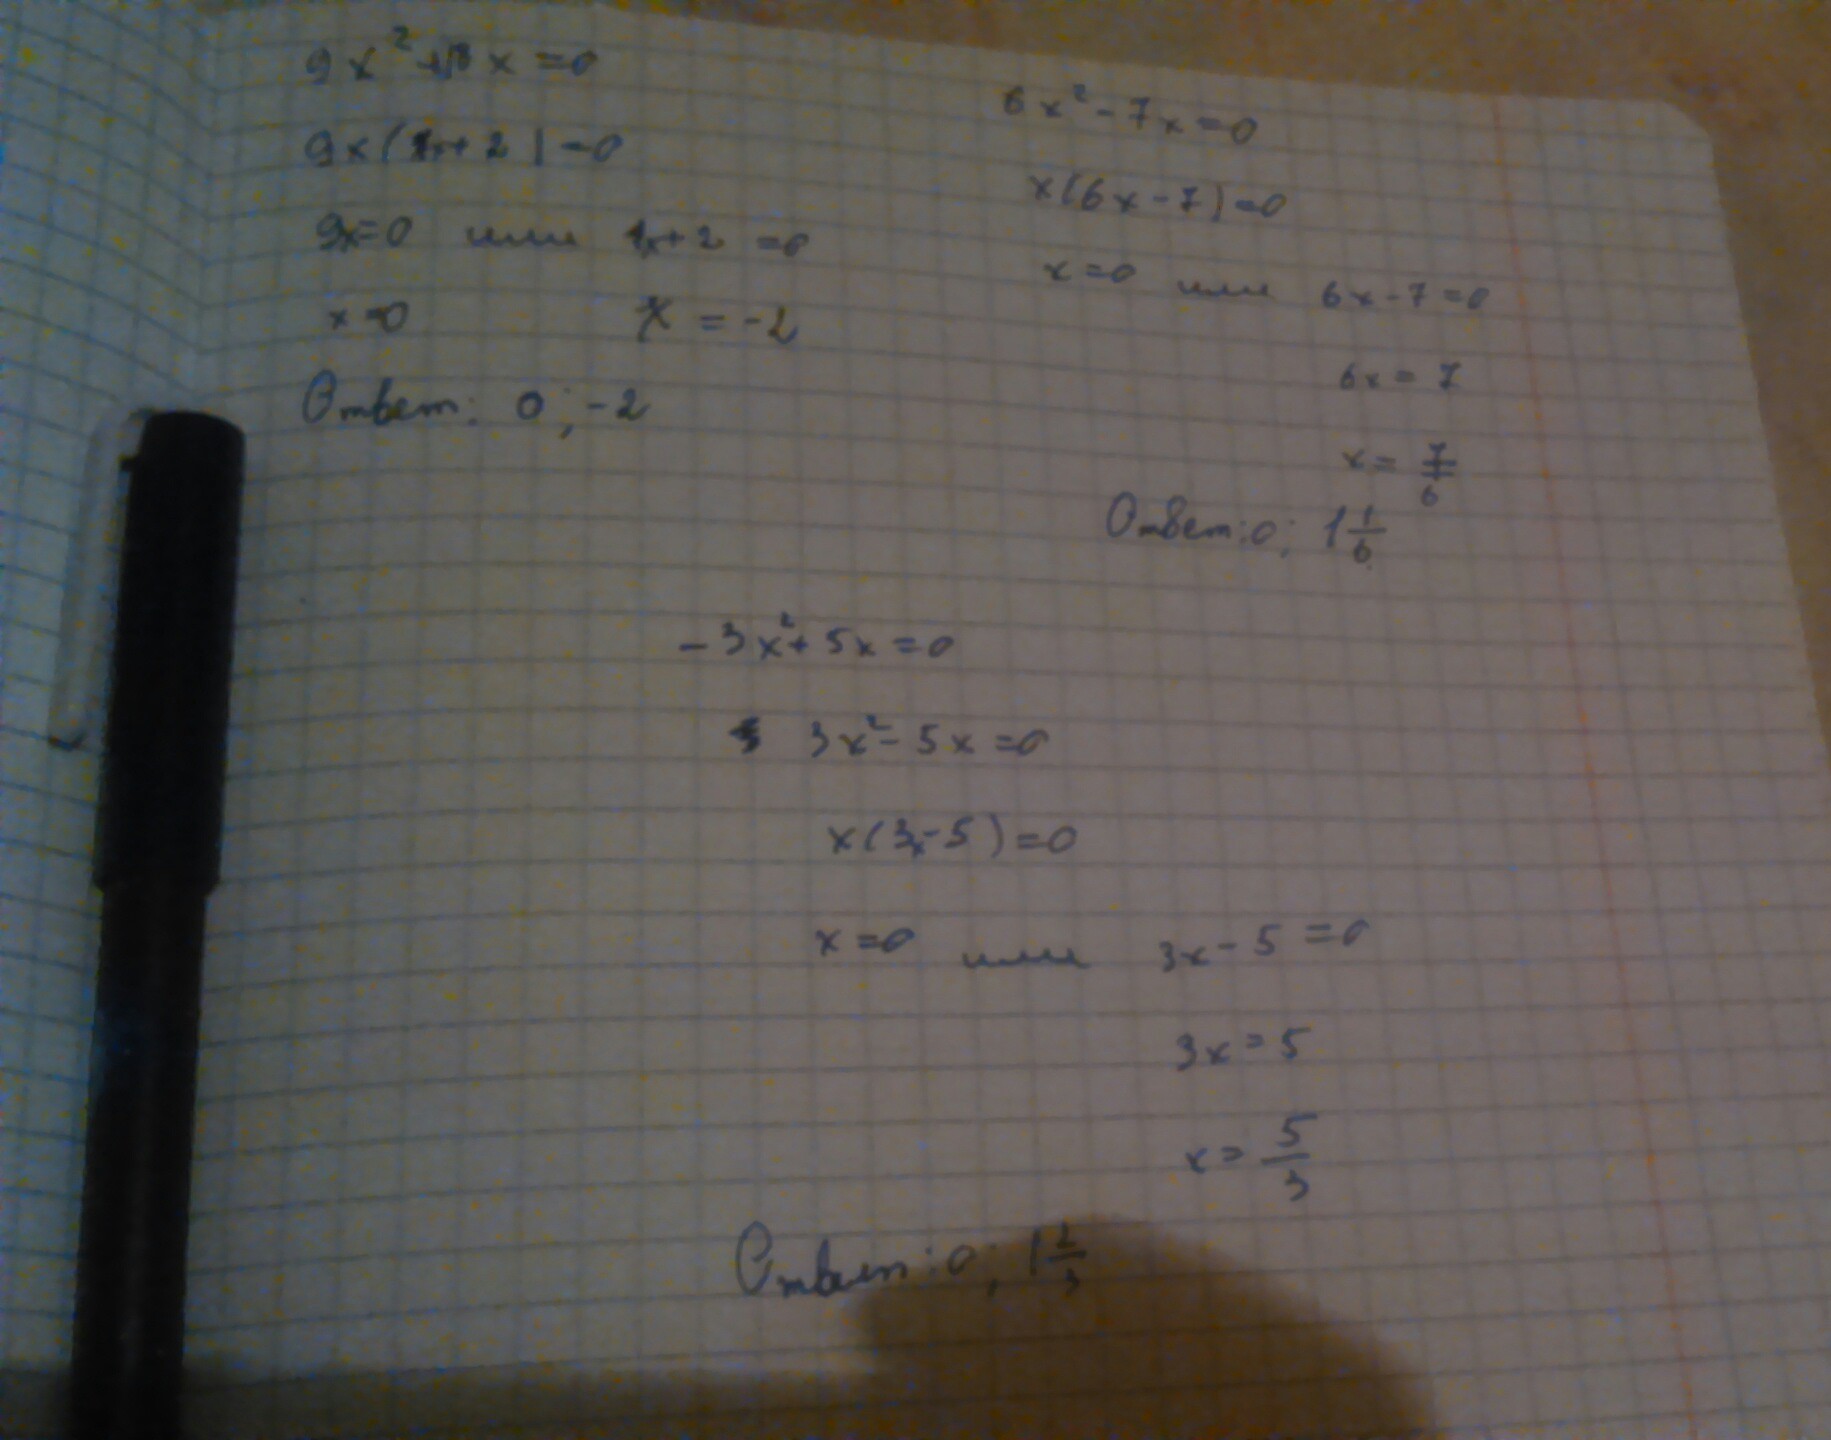 9x² + 18x = 0
9x(x + 2) = 0
9x = 0 или x + 2 = 0
x = 0 x = -2
Ответ: 0; -2
6x² - 7x = 0
x(6x - 7) = 0
x = 0 или 6x - 7 = 0
6x = 7
x = 7/6
Ответ: 0; 1 1/6
-3x² + 5x = 0
3x² - 5x = 0
x(3x - 5) = 0
x = 0 или 3x - 5 = 0
3x = 5
x = 5/3
Ответ: 0; 1 2/3